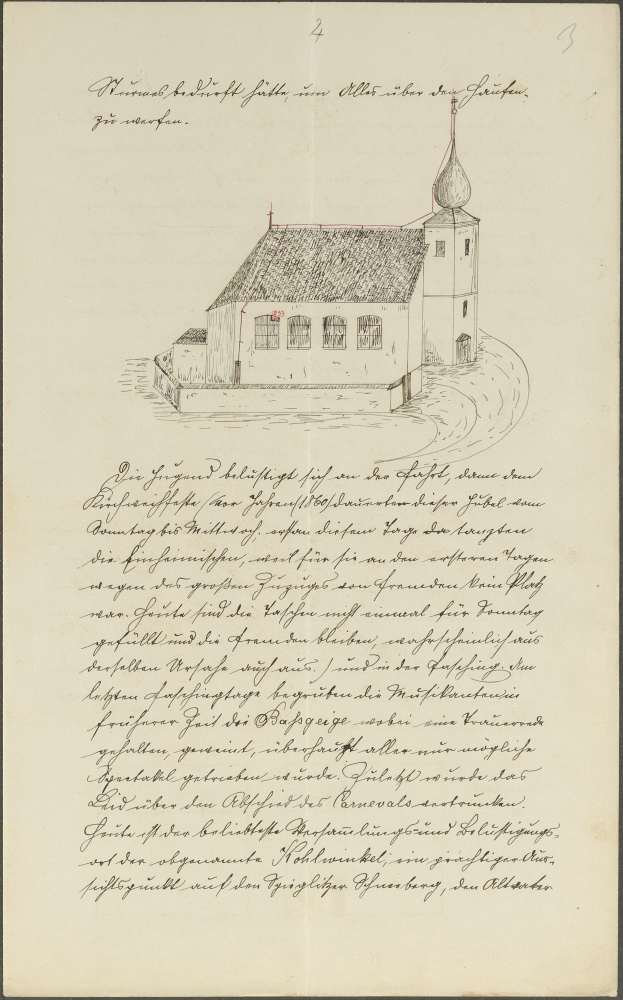 2
3
Sturmes bedurft hätte, um Alles über den Haufen-
zu werfen.
Die Jugend belustigt sich an der Fahrt, dann dem
Kirchweihfeste (vor Jahren /1860/ dauerten dieser Jubel vom
Sonntag bis Mittwoch. erst an diesem Tage da tanzten
die Einheimischen, weil für sie an den ersteren Tagen
wegen des großen Zuzuges von Fremden kein Platz
war. Heute sind die Taschen nicht einmal für Sonntag
gefüllt und die Fremden bleiben, wahrscheinlich aus
derselben Ursache auch aus.) und in der Fasching. Am
letzten Faschingtage begruben die Musikanten in
früherer Zeit die Baßgeige wobei eine Trauerrede
gehalten, geweint, überhaupt aller nur mögliche
Spectakel getrieben wurde. Zuletzt wurde das
Leid über den Abschied des Carnevals vertrunken.
Heute ist der beliebteste Versammlungs- und Belustigungs-
ort der obgenannte Kohlwinkel, ein prächtiger Aus-
sichtspunkt auf den Spieglitzer Schneeberg, den Altvater